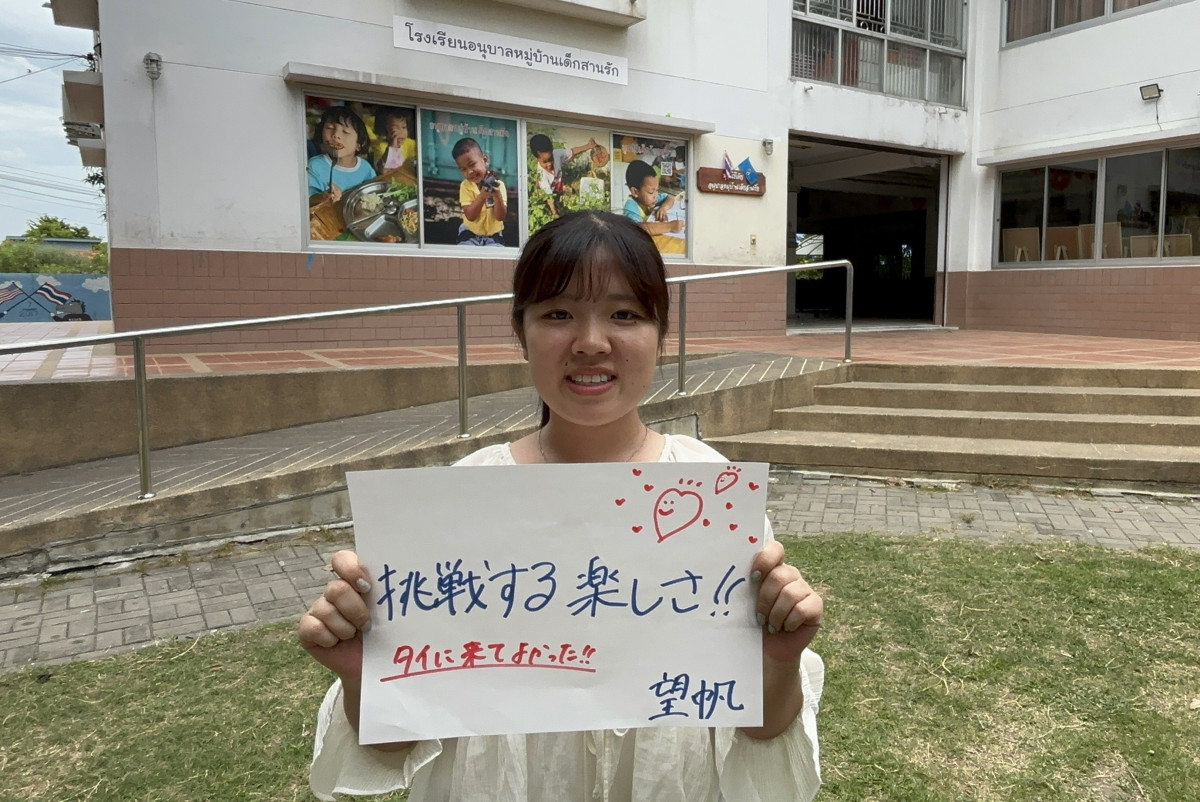 โรงเรียนอนุบาลหมู่บ้านเด็กสานรัก
挑戦する楽しさ!!
タイに来てよかった!!
望帆